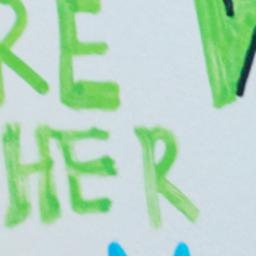 RE
HER